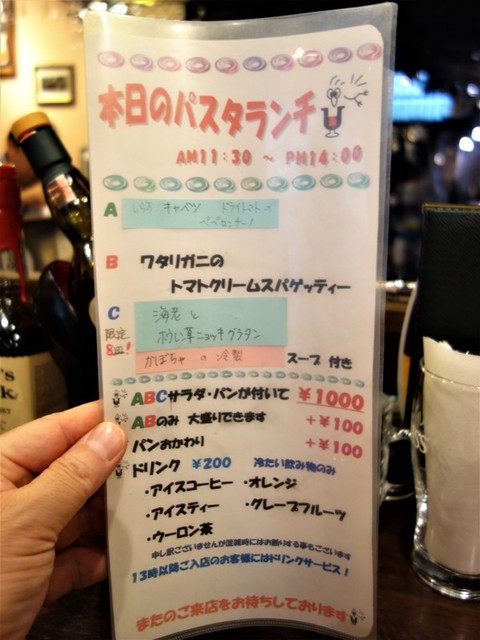 本日のパスタランチ
AM11:30 ～ PM14:00
A しらす キャベツ ドライトマトの
ペペロンチーノ
B ワタリガニの
トマトクリームスパゲッティー
C 海老と
限定 ほうれん草ニョッキグラタン
8皿! かぼちゃ の 冷製 スープ 付き
ABCサラダ・パンが付いて ¥1000
ABのみ 大盛りできます +¥100
パンおかわり +¥100
ドリンク ¥200 冷たい飲み物のみ
・アイスコーヒー ・オレンジ
・アイスティー ・グレープフルーツ
・ウーロン茶
申し訳ございませんが混雑時にはお断りする事もございます
13時以降ご入店のお客様にはドリンクサービス!
またのご来店をお待ちしております